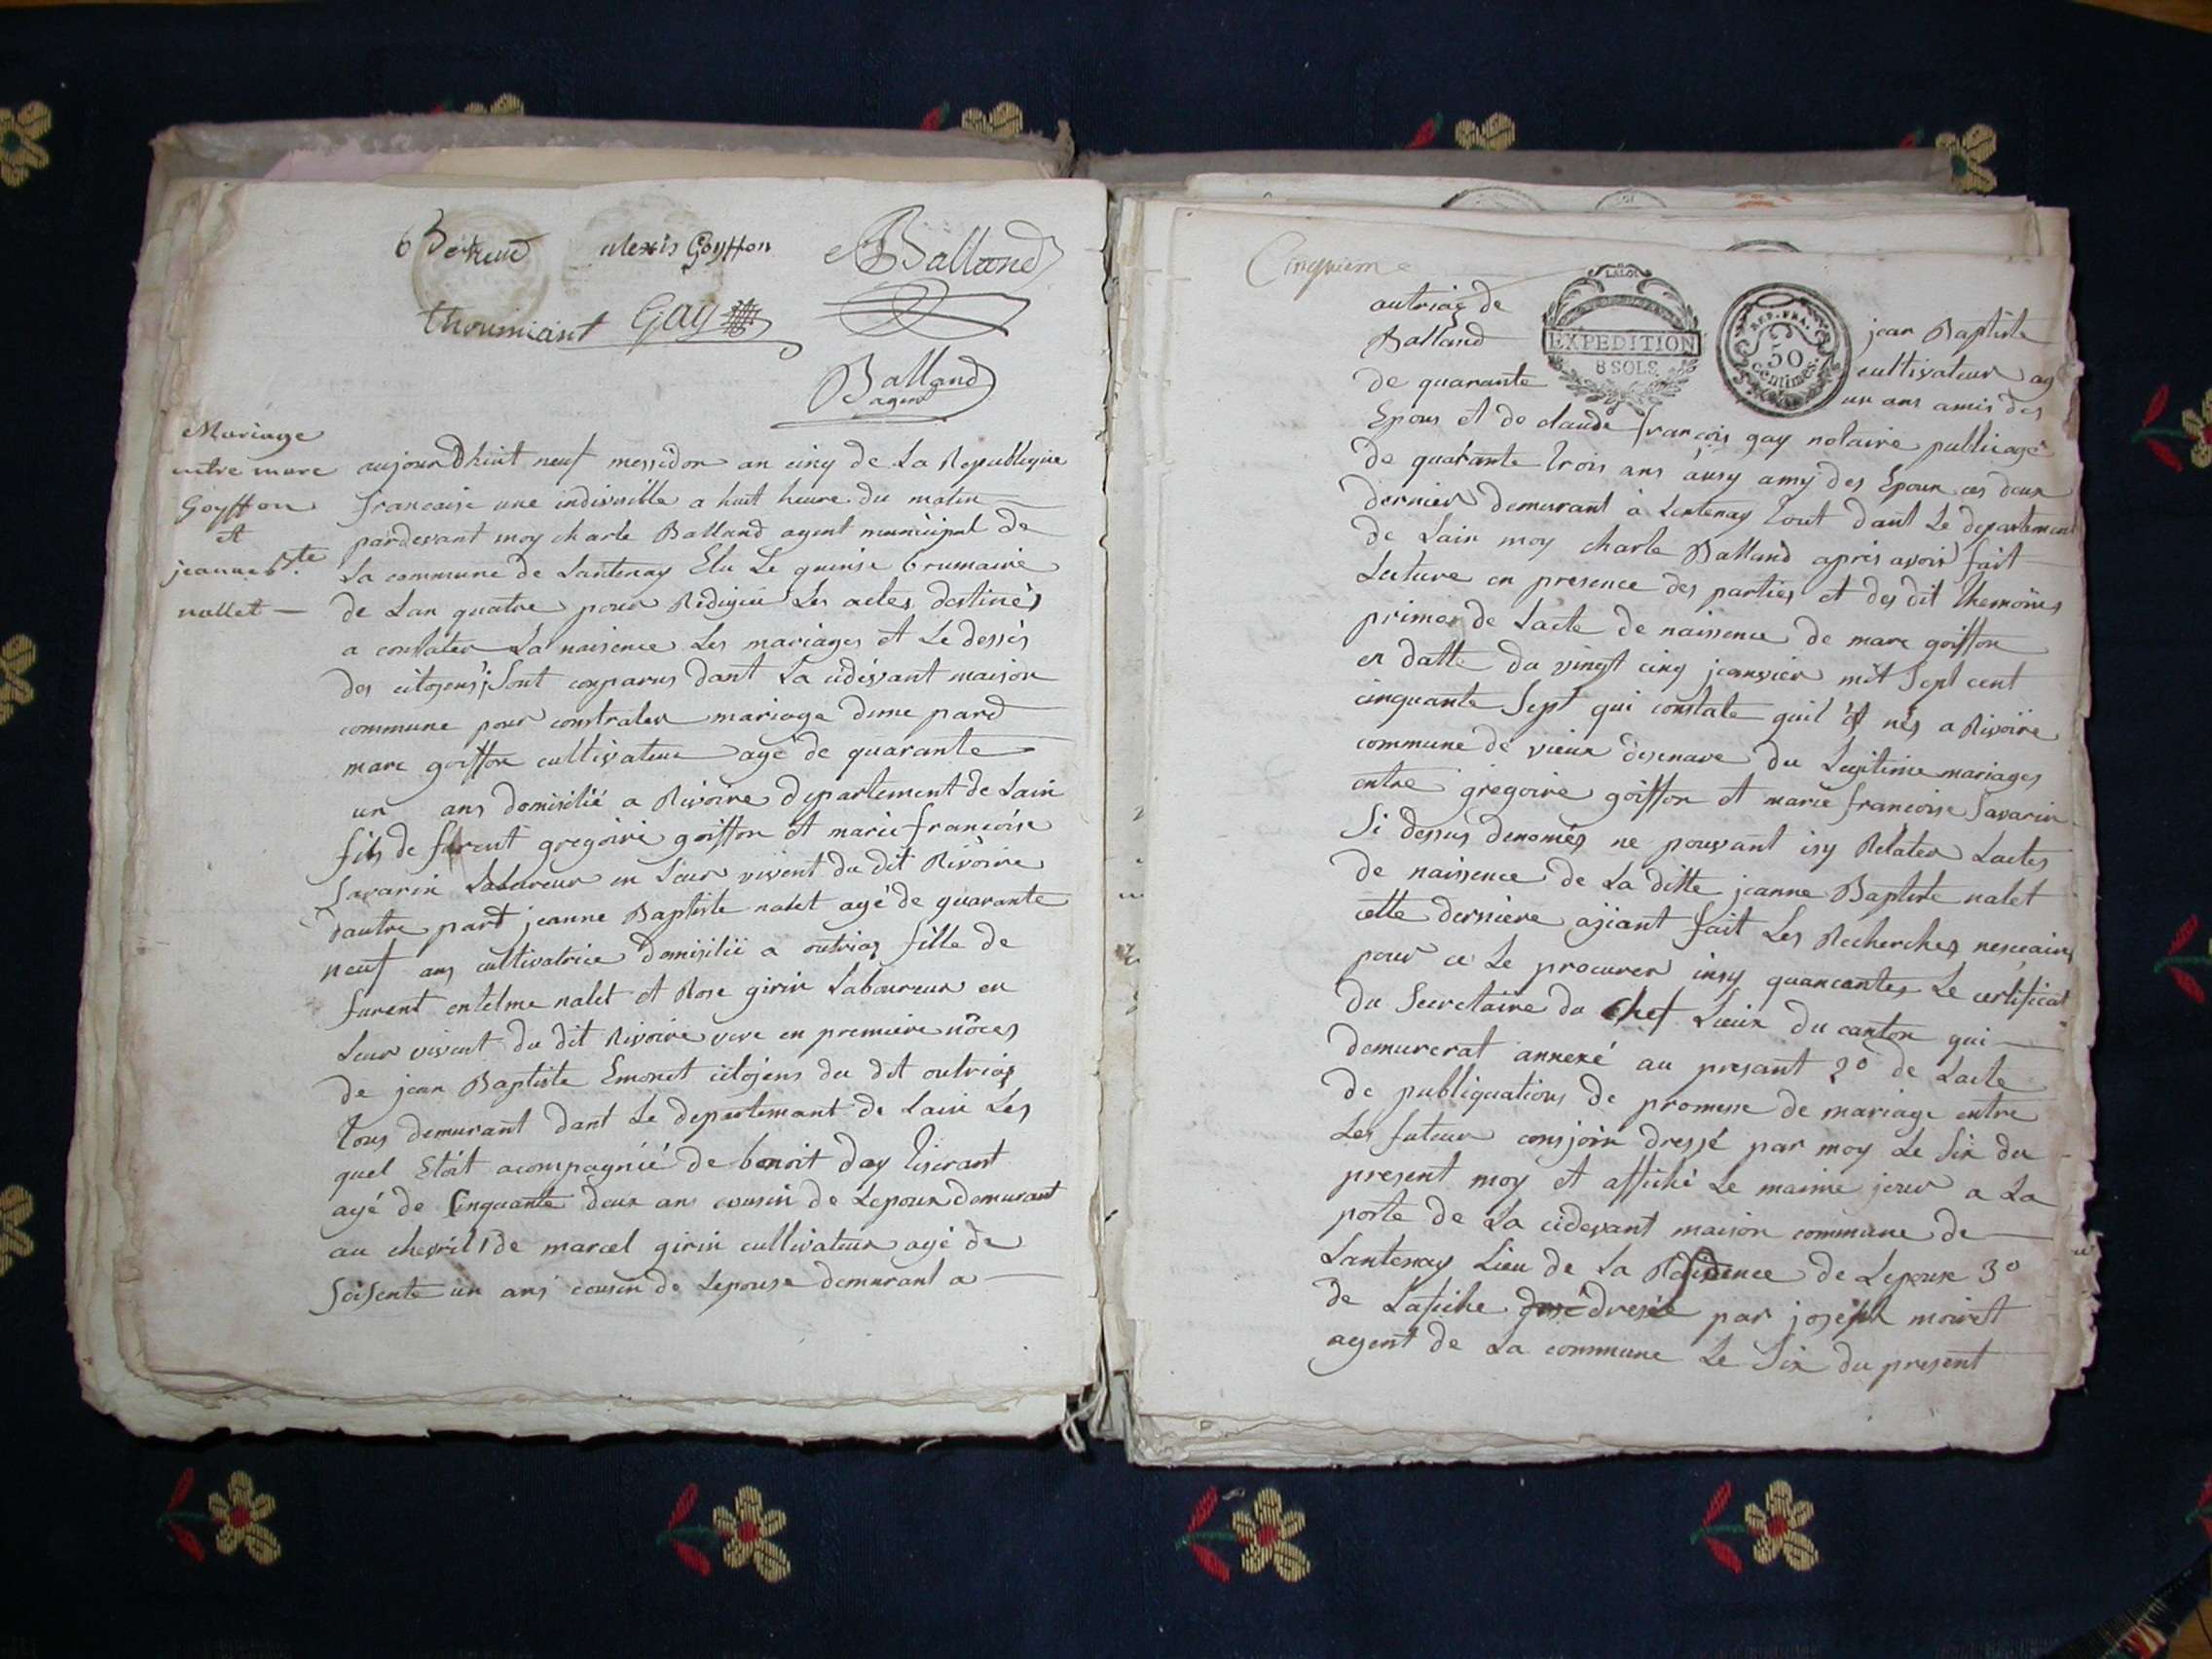 alexis Goyffon
Balland
thoumiant Gay
Balland
agent
Mariage
entre marc
Goyffon
et
jeanne bte
nallet
aujourdhuit neuf messidor an cinq de La Republique
francaise une indivisille a huit heure du matin
pardevant moy charle Balland agent municipal de
La commune de Lantenay Elu Le quinse brumaire
de Lan quatre pour Redigiu Les actes destinés
a constater La naisence Les mariages et Le dessés
des citojens; Sont conparus dant La cidevant maison
commune pour contrater mariage dune pard
marc goiffon cultivateur agé de quarante
un ans domisilié a Rivoire departement de Lain
fils de furent gregoire goiffon et marie francoise
Savarin Laboureur en Leur vivent du dit Rivoire
dautre part jeanne Baptiste nalet agé de quarante
neuf ans cultivatrice domisilié a outriaz fille de
furent entelme nalet et Rose girin Laboureur en
Leur vivent du dit Rivoire veve en premiere nôces
de jean Baptiste Emonet citojens du dit outriaz
tous demurant dant Le departemant de Lain Les
quel Etóit acompagnié de benoit day tiserant
agé de Cinquante deux ans cousin de Lepoux demurant
au chevril, de marcel girin cultivateur agé de
soisente un ans cousin de Lepouse demurant a
Cinquieme
autriaz de
Balland
de quarante
LA LOI
EXPEDITION
8 SOLS
REP. FRA.
50
centimes.
jean Baptiste
cultivateur ag
un ans amis des
Epoux et de claude francois gay notaire public agé
de quarante trois ans ausy amy des Epoux ces deux
dernier demeurant à Lentenay tout dant Le departement
de Lain moy charle Balland après avoir fait
Lecture en presence des parties et des dit themoins
primo de Lacte de naissence de marc goiffon
en datte du vingt cinq jeanvier mit Sept cent
cinquante Sept qui constate quil ét nés a Rivoire
commune de vieux disenave du Legitime mariages
entre gregoire goiffon et marie francoise Savarin
Si dessus denomés ne pouvant isy Relater Lactes
de naissence de La ditte jeanne Baptiste nalet
cette derniere ajiant fait Les Recherches
pour ce Le procurer insy Le certificat
du Secretaire du Chef Lieux du canton qui
demurerat annexé au presant 2º de Lacte
de publiquations de promesse de mariage entre
Les futeur consjoin dressé par moy Le Six du
present moy et affiché Le maime jour a La
porte de La cidevant maison commune de
Lantenay Lieu de La Residence de Lepoux 3º
de Lafiche dresée par joseph moiret
agent de La commune Le Six du present